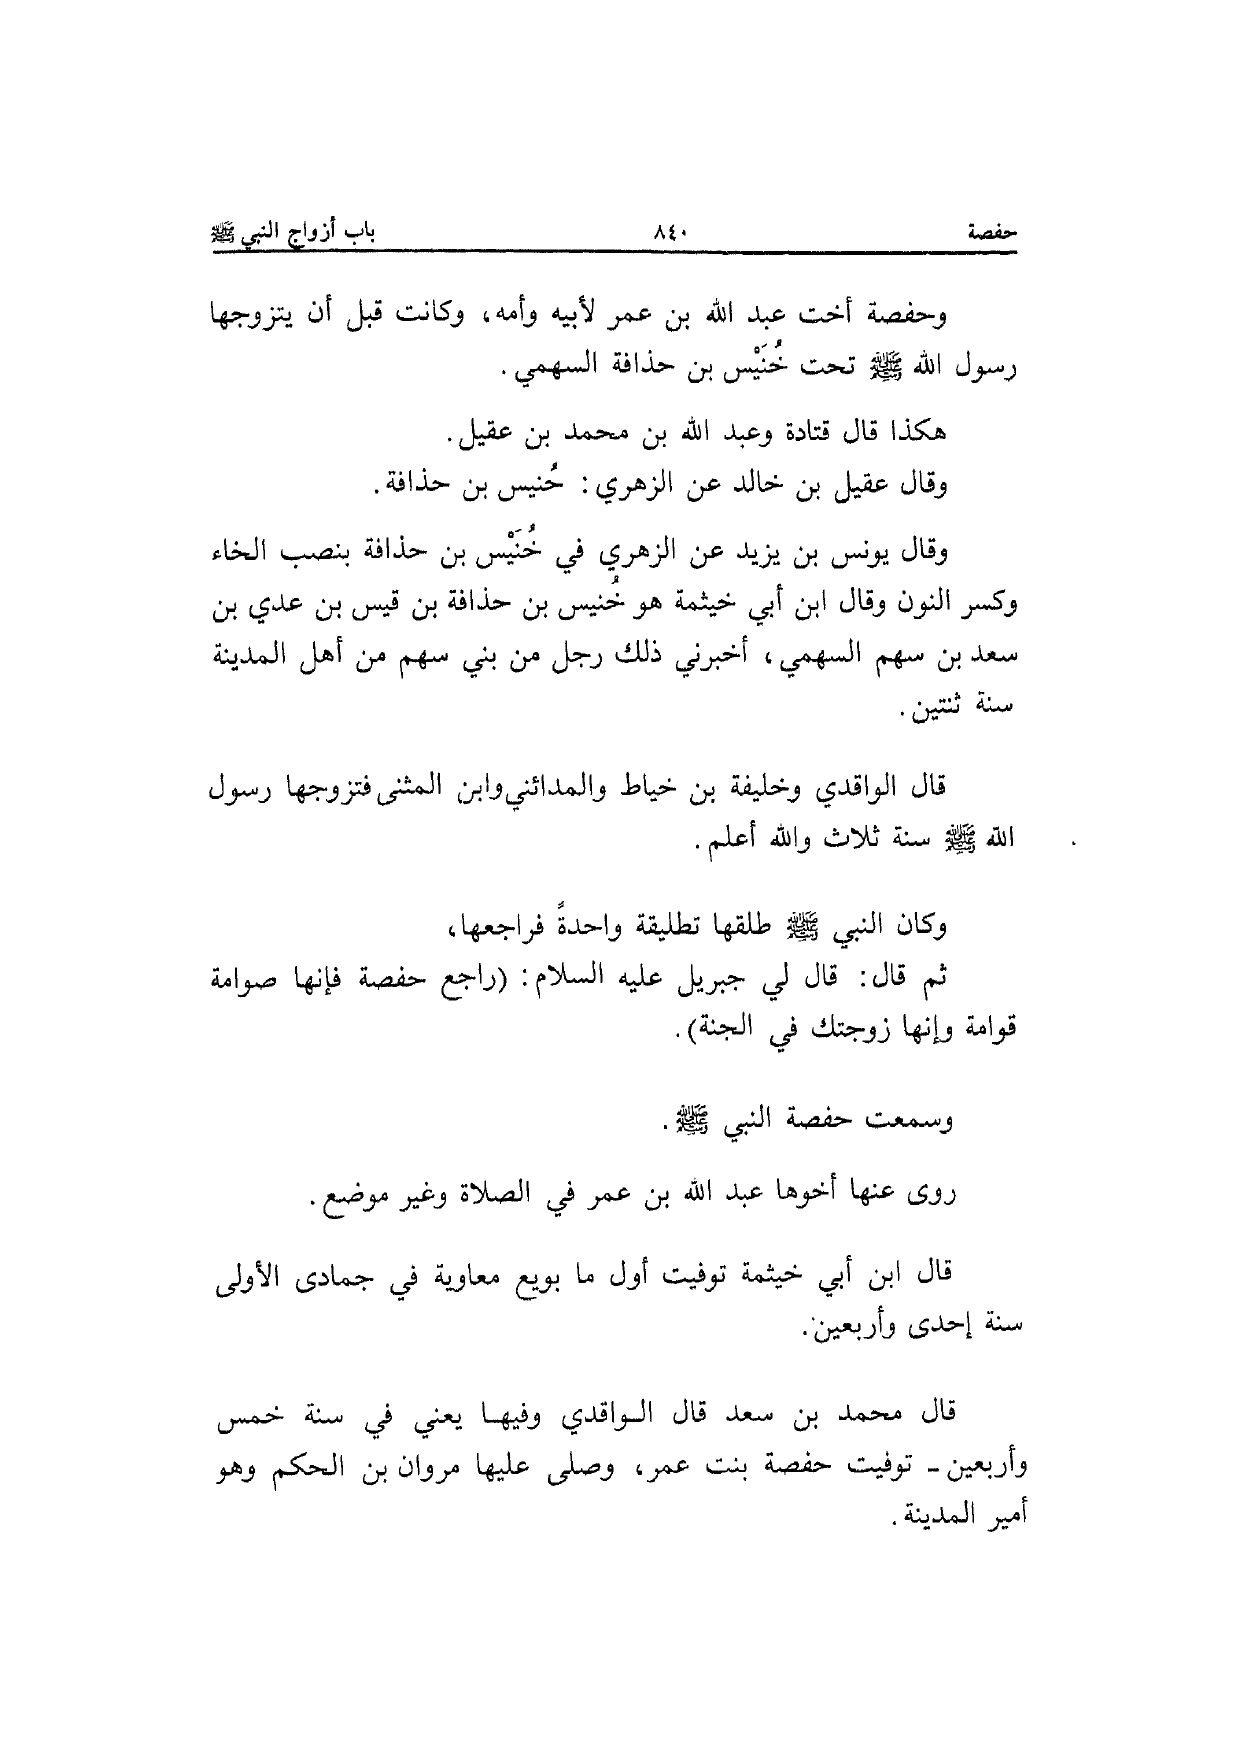 حفصة ٨٤٠ باب أزواج النبي ﷺ
وحفصة أخت عبد الله بن عمر لأبيه وأمه، وكانت قبل أن يتزوجها
رسول الله ﷺ تحت خُنَيْس بن حذافة السهمي.
هكذا قال قتادة وعبد الله بن محمد بن عقيل.
وقال عقيل بن خالد عن الزهري: خُنيس بن حذافة.
وقال يونس بن يزيد عن الزهري في خُنَيْس بن حذافة بنصب الخاء
وكسر النون وقال ابن أبي خيثمة هو خُنيس بن حذافة بن قيس بن عدي بن
سعد بن سهم السهمي، أخبرني ذلك رجل من بني سهم من أهل المدينة
سنة ثنتين.
قال الواقدي وخليفة بن خياط والمدائني وابن المثنى فتزوجها رسول
الله ﷺ سنة ثلاث والله أعلم.
وكان النبي ﷺ طلقها تطليقة واحدةً فراجعها،
ثم قال: قال لي جبريل عليه السلام: (راجع حفصة فإنها صوامة
قوامة وإنها زوجتك في الجنة).
وسمعت حفصة النبي ﷺ.
روى عنها أخوها عبد الله بن عمر في الصلاة وغير موضع.
قال ابن أبي خيثمة توفيت أول ما بويع معاوية في جمادى الأولى
سنة إحدى وأربعين.
قال محمد بن سعد قال الواقدي وفيها يعني في سنة خمس
وأربعين - توفيت حفصة بنت عمر، وصلى عليها مروان بن الحكم وهو
أمير المدينة.